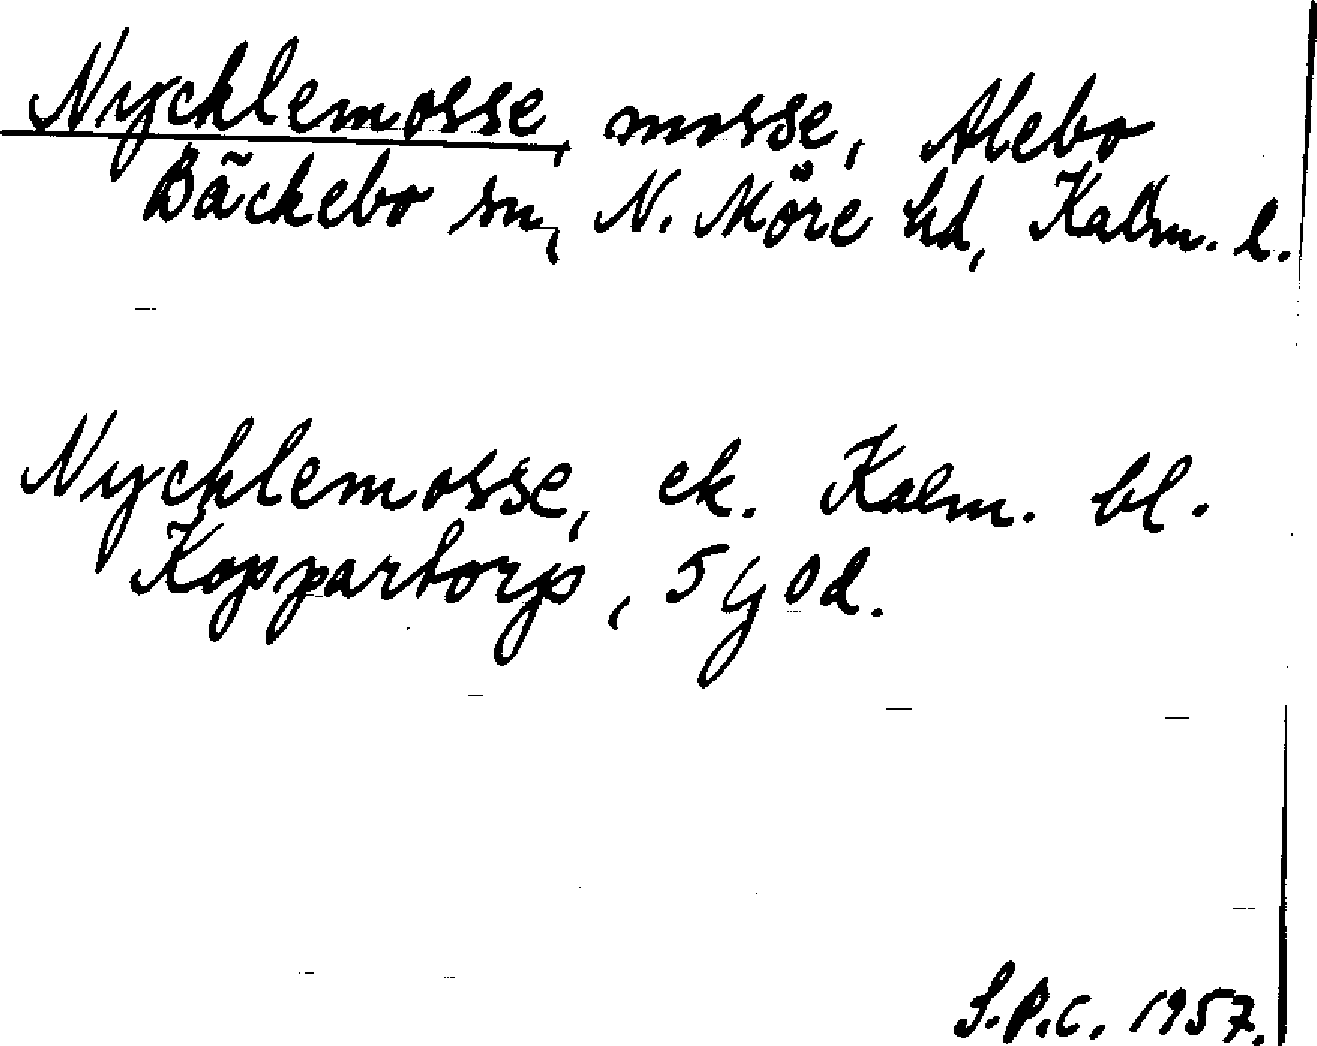 Nycklemosse, mosse, Alebo
Bäckebo sn, N. Möre hd, Kalm. l.
Nycklemosse, ek. Kalm. bl.
Koppartorp, 5 g 0 d.
S.P.C. 1957.